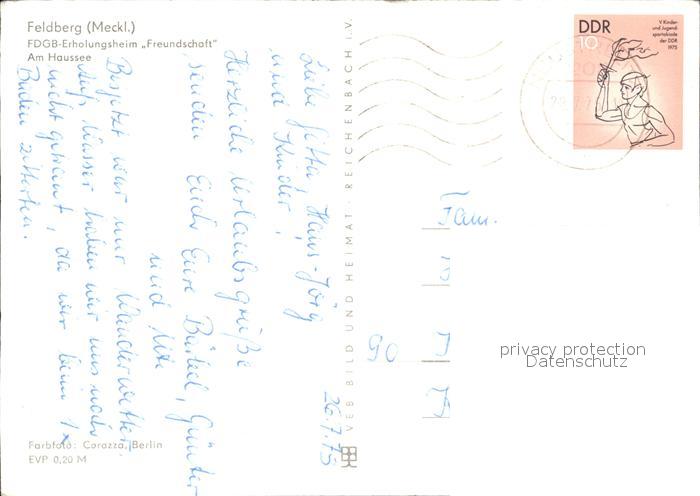 Feldberg (Meckl.)
FDGB-Erholungsheim „Freundschaft"
Am Haussee
26.7.75
Liebe Gitta, Hans-Jörg
und Kinder,
Herzliche Urlaubsgrüße
senden Euch Eure Bärbel, Günter
und Ute
Besetzt war nur Wanderwetter.
Aufs Wasser haben wir uns noch
nicht getraut, da wir beim 1x
Baden zitterten.
Farbfoto: Corazza, Berlin
EVP 0,20 M
VEB BILD UND HEIMAT · REICHENBACH i. V.
DDR
10
V. Kinder-
und Jugend-
spartakiade
der DDR
1975
Fam.
90
privacy protection
Datenschutz